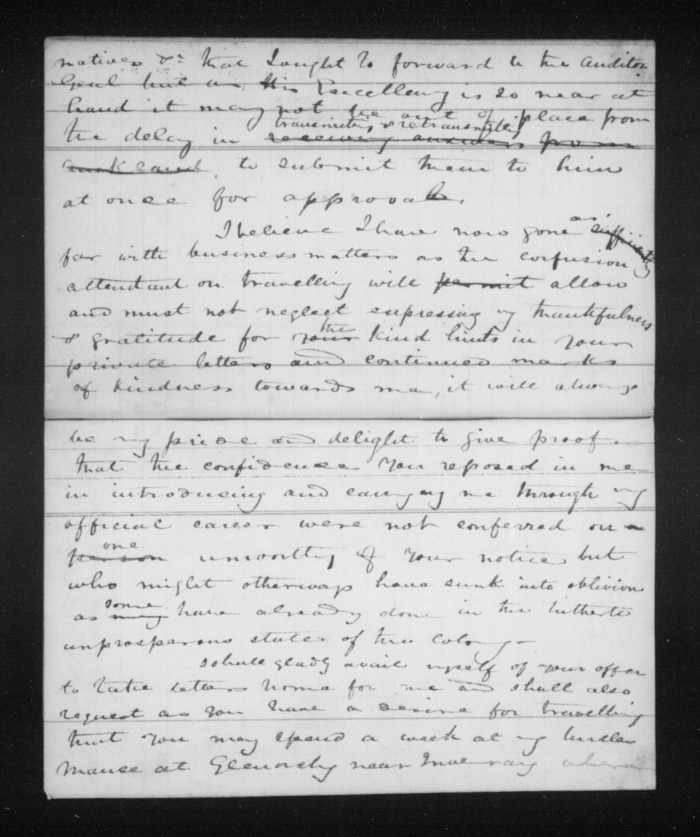 natives &c that I ought to forward to the Auditor
Genl but as His Excellency is so near at
hand it may not be out of place from
the delay in receiving answers from
transmitting & retransmitting
Auckland, to submit them to him
at once for approval.
I believe I have now gone as sufficiently
far with business matters as the confusion
attendant on travelling will permit allow
and must not neglect expressing my thankfulness
& gratitude for your the kind hints in your
private letters and continued marks
of kindness towards me, it will always
be my pride and delight to give proof
that the confidence you reposed in me
in introducing and carrying me through my
official career were not conferred on a
person one unworthy of your notice but
who might otherways have sunk into oblivion
as many some have already done in the hitherto
unprosperous state of the Colony —
I shall gladly avail myself of your offer
to take letters home for me and shall also
request as you have a desire for travelling
that you may spend a week at my
Manse at Glenorchy near Inveraray where